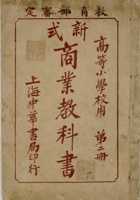 教育部審定
新式
商業教科書
高等小學校用 第二冊
上海中華書局印行